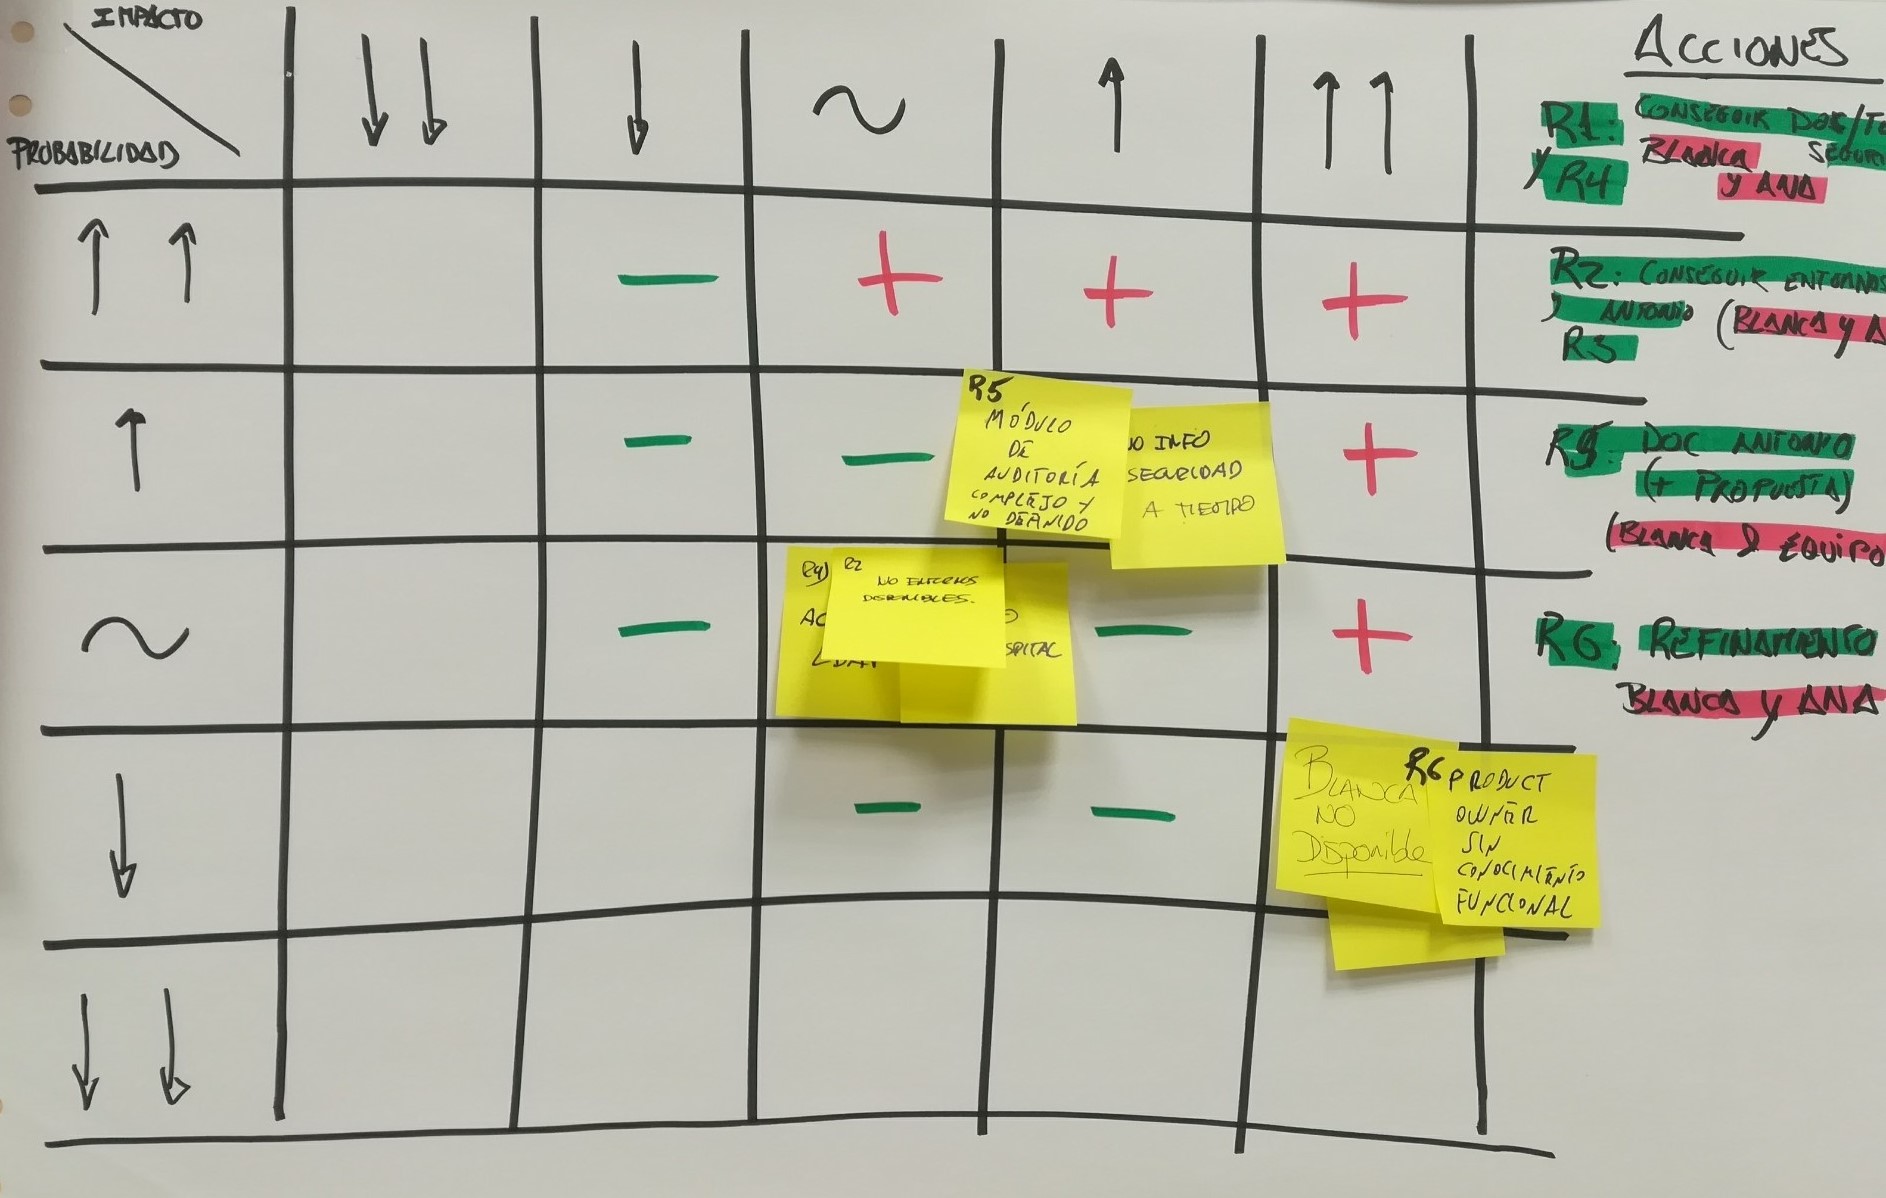 IMPACTO
PROBABILIDAD
R5
MÓDULO
DE
AUDITORÍA
COMPLEJO Y
NO DEFINIDO
INFO
SEGURIDAD
A TIEMPO
R4)
R2
NO ENTORNOS
DISPONIBLES.
BLANCA
NO
DISPONIBLE
R6 PRODUCT
OWNER
SIN
CONOCIMIENTO
FUNCIONAL
ACCIONES
R1: CONSEGUIR
y R4 BLANCA
y ANA
R2: CONSEGUIR ENTORNOS
ANTONIO (BLANCA y
R3
DOC ANTONIO
(+ PROPUESTA)
(BLANCA & EQUIPO
R6: REFINAMIENTO
BLANCA y ANA